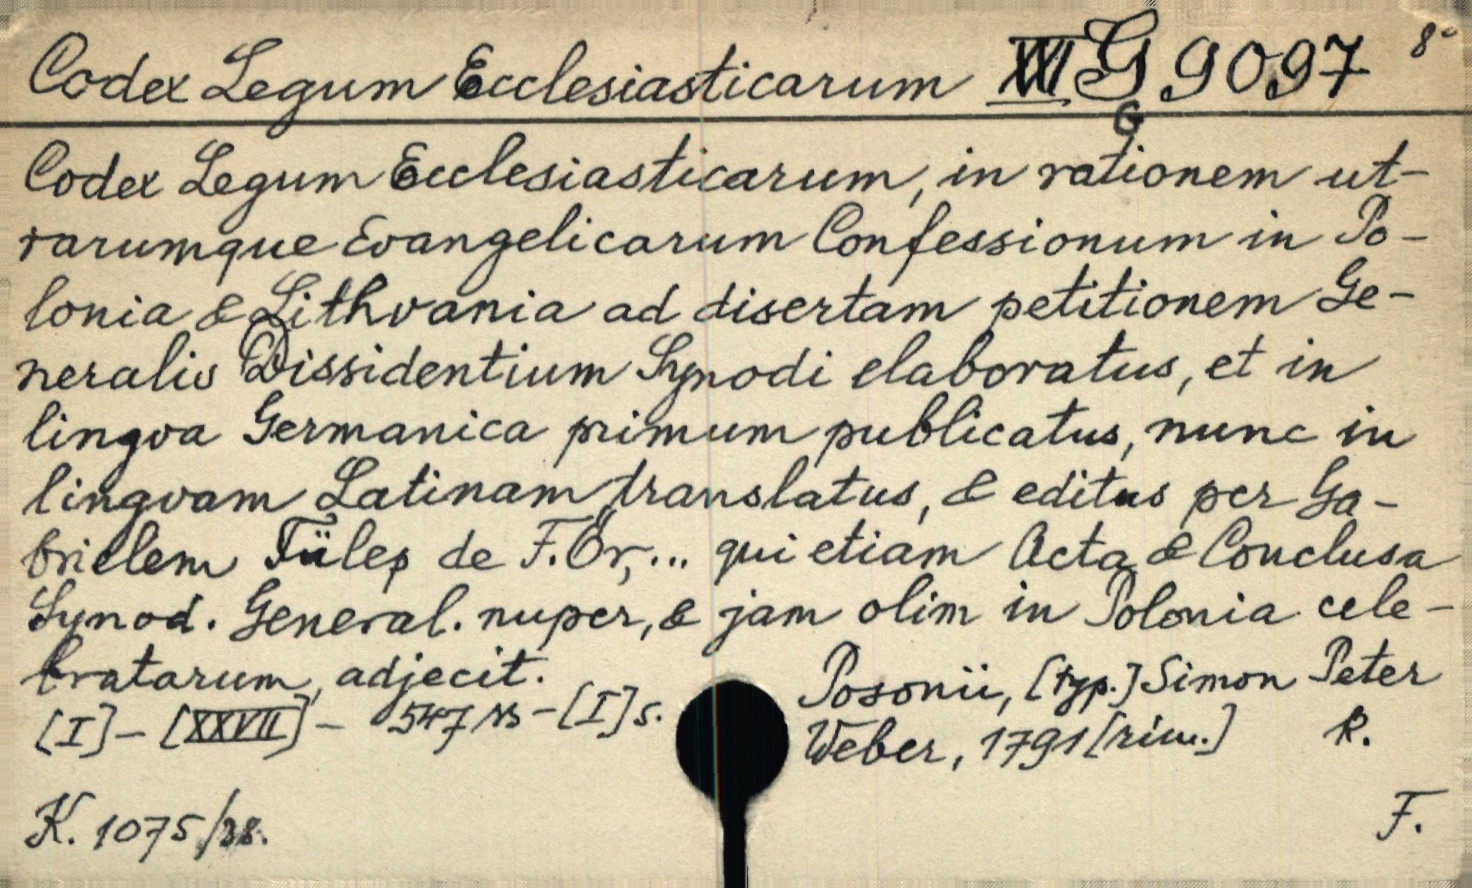 Codex Legum Ecclesiasticarum XVI G 9097 8°
G
Codex Legum Ecclesiasticarum, in rationem ut-
rarumque Evangelicarum Confessionum in Po-
lonia & Lithvania ad disertam petitionem Ge-
neralis Dissidentium Synodi elaboratus, et in
lingva Germanica primum publicatus, nunc in
lingvam Latinam translatus, & editus per Ga-
brielem Fülep de F.Ör,... qui etiam Acta & Conclusa
Synod. General. nuper, & jam olim in Polonia cele-
bratarum, adjecit.
Posonii, [typ.] Simon Peter
[I]-[XXVII]- 547 -[I]s.
Weber, 1791 [rim.] R.
K. 1075/38.
F.